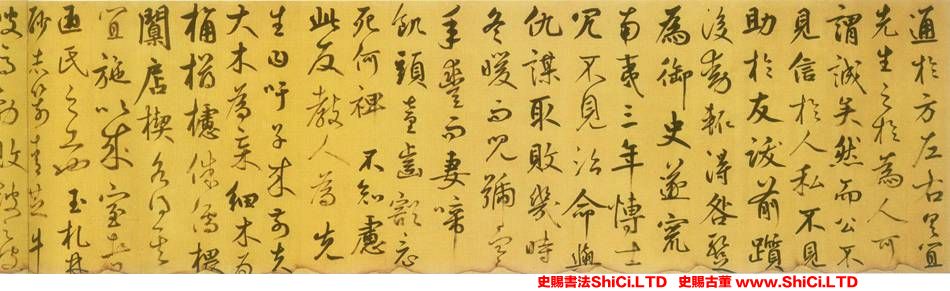 通於方左右具宜
先生之於為人可
謂誠矣然而公不
見信於人私不見
助於友跋前躓
後動輒得咎暫
為御史遂竄
南夷三年博士
冗不見治命與
仇謀取敗幾時
冬暖而兒號寒
年豐而妻啼
飢頭童齒豁
死何裨不知慮
此反教人為先
生曰吁子來前夫
大木為杗細木為
桷欂櫨侏儒椳
闑扂楔各得其
宜施以成室者
匠氏之工也玉札丹
砂赤箭青芝牛
史賜書法ShiCi.LTD 史賜古董 www.ShiCi.LTD